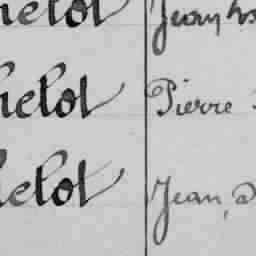 helot Jean, Bs
helot Pierre
helot Jean, a